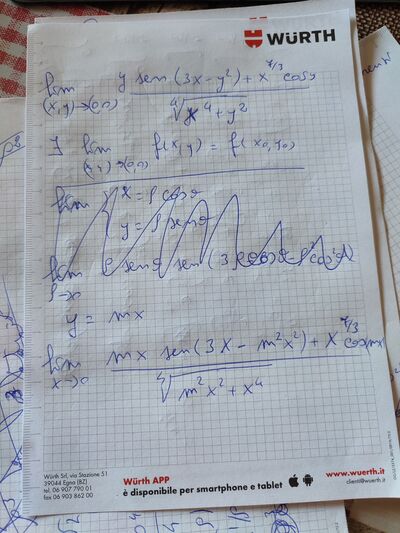 WÜRTH
lim y sen (3x - y²) + x^7/3 cos y
(x,y)→(0,0) ∜x⁴ + y²
∃ lim f(x,y) = f(x₀,y₀)
(x,y)→(0,0)
lim x = ρ cos ϑ
y = ρ sen ϑ
lim ρ sen ϑ sen (3ρ cos ϑ - ρ²
y = mx
lim mx sen (3x - m²x²) + x^7/3 cos mx
x→0 ∜m²x² + x⁴
Würth Srl, via Stazione 51
39044 Egna (BZ)
tel. 06 907 790 01
fax 06 903 862 00
Würth APP
è disponibile per smartphone e tablet
www.wuerth.it
clienti@wuerth.it